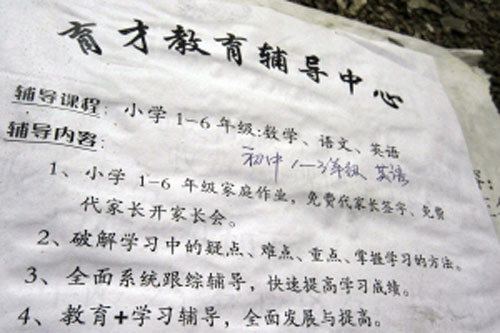 育才教育辅导中心
辅导课程：小学1-6年级:数学、语文、英语
初中1-3年级 英语
辅导内容：
1、小学1-6年级家庭作业，免费代家长签字、免费
代家长开家长会。
2、破解学习中的疑点、难点、重点、掌握学习的方法。
3、全面系统跟综辅导，快速提高学习成绩。
4、教育+学习辅导，全面发展与提高。